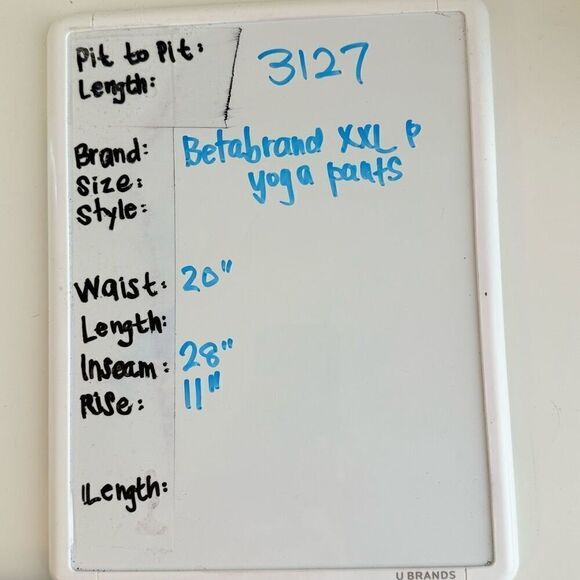 Pit to Pit:
Length: 3127
Brand: Betabrand XXL P
Size: yoga pants
Style:
Waist: 20"
Length:
Inseam: 28"
Rise: 11"
Length:
U BRANDS